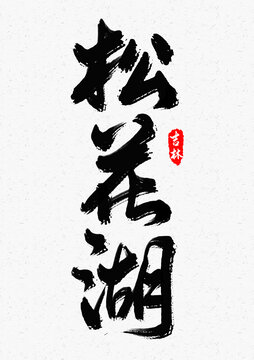 松花湖
吉林